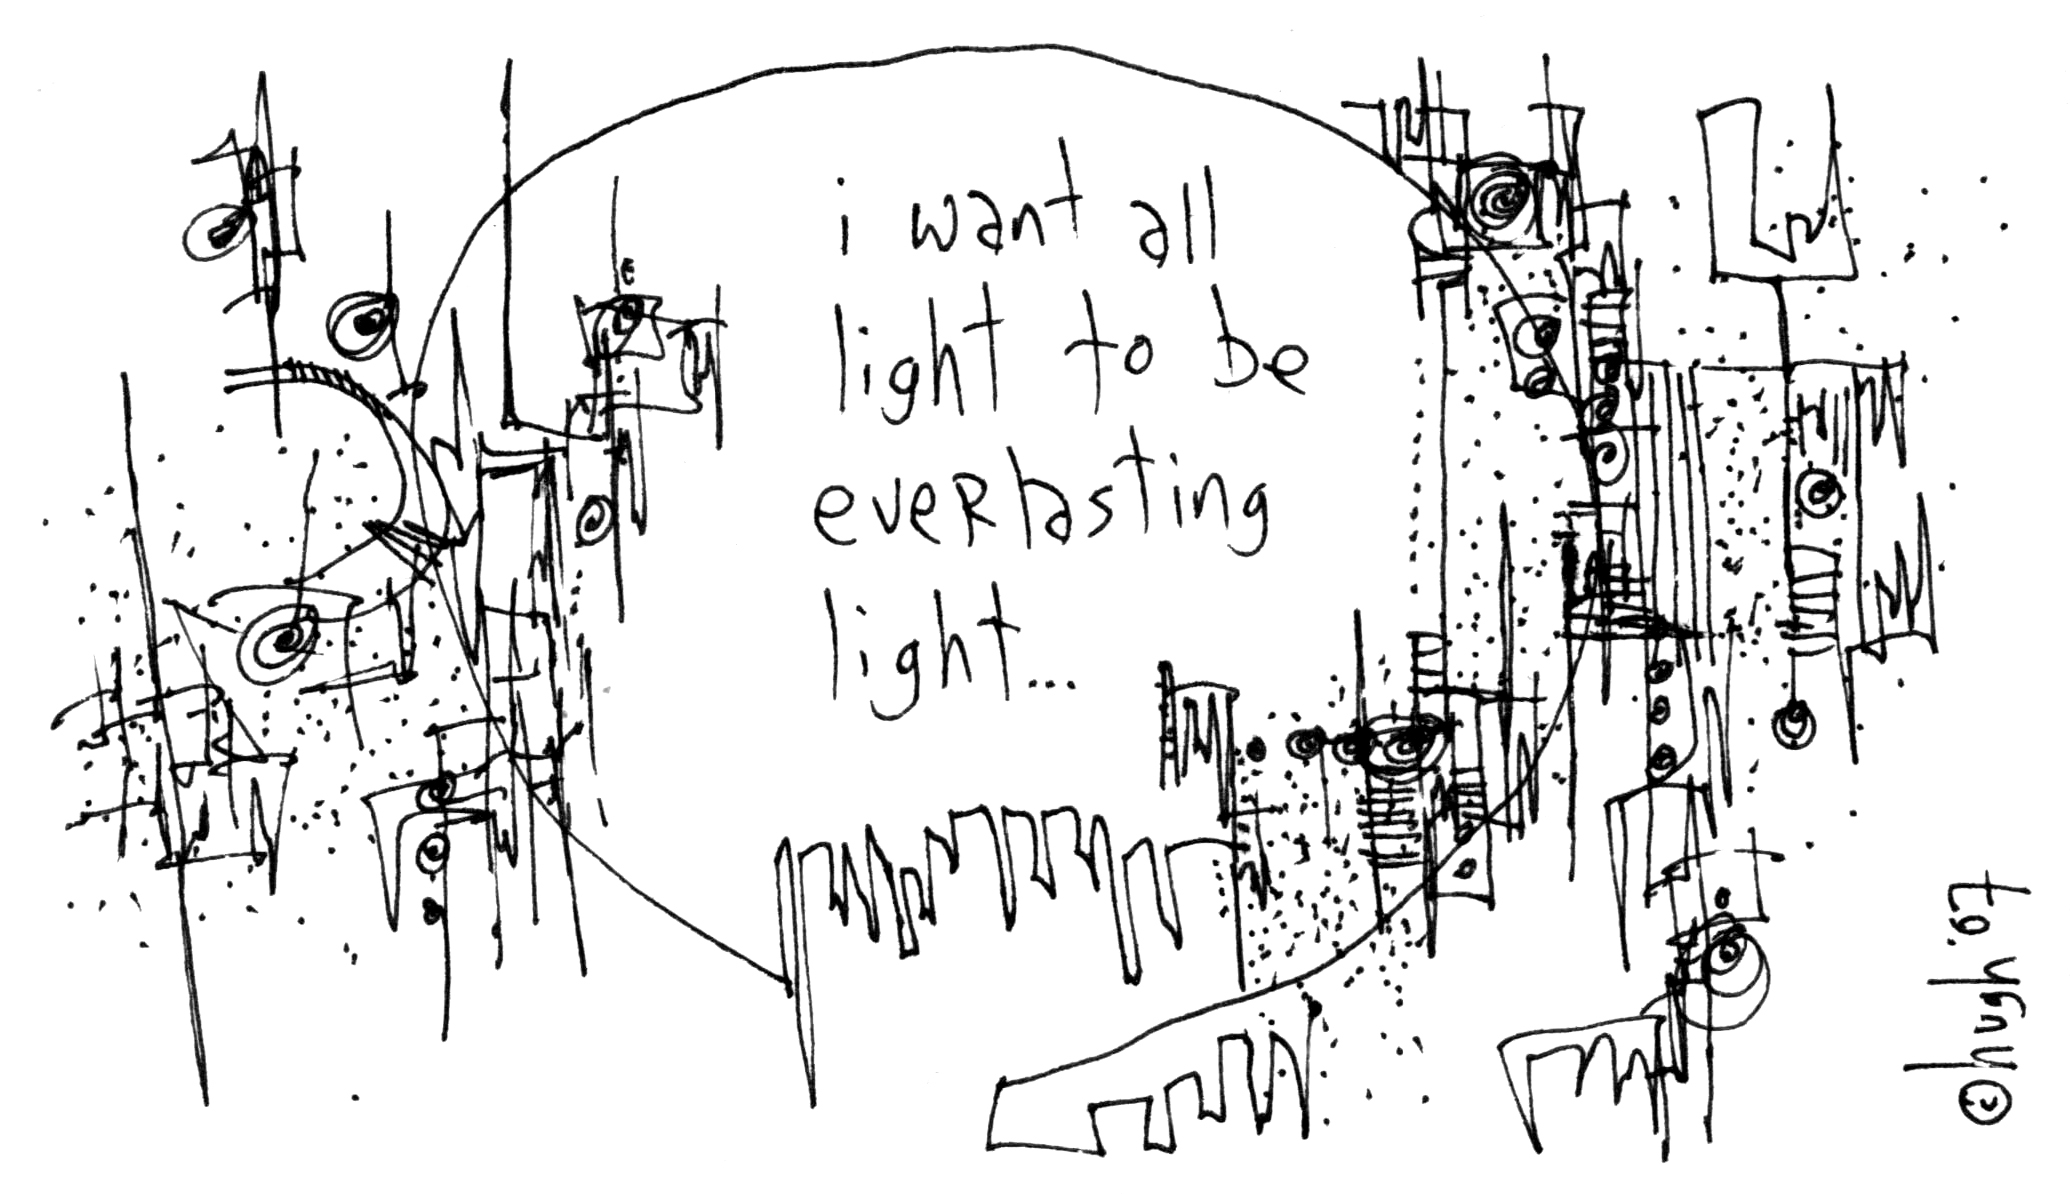 i want all
light to be
everlasting
light...
©hugh '07